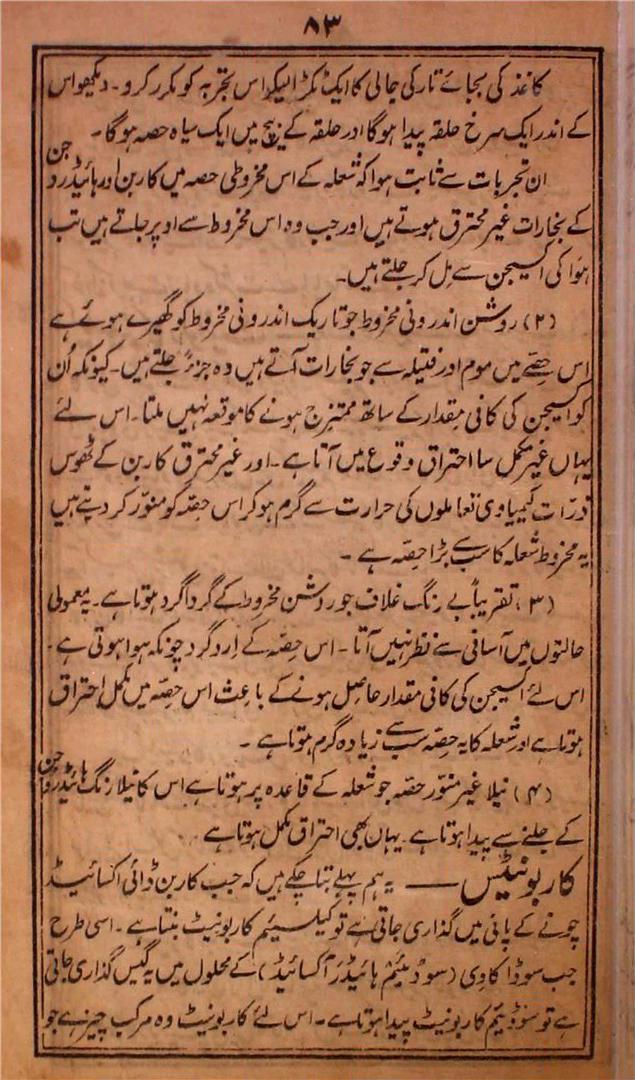 ۸۳
کاغذ کی بجائے تار کی جالی کا ایک ٹکڑا لیکر اس تجربہ کو مکرر کرو۔ دیکھو اس
کے اندر ایک سرخ حلقہ پیدا ہوگا اور حلقہ کے بیچ میں ایک سیاہ حصہ ہوگا۔
ان تجربات سے ثابت ہوا کہ شعلہ کے اس مخروطی حصہ میں کاربن اور ہائیڈروجن
کے بخارات غیر محترق ہوتے ہیں اور جب وہ اس مخروط سے اوپر جاتے ہیں تب
ہوا کی آکسیجن سے مل کر جلتے ہیں۔
(۲) روشن اندرونی مخروط جو تاریک اندرونی مخروط کو گھیرے ہوئے ہے
اس حصّے میں موم اور فتیلہ سے جو بخارات آتے ہیں وہ جزءً جلتے ہیں۔ کیونکہ اُن
کو آکسیجن کی کافی مقدار کے ساتھ ممتزج ہونے کا موقعہ نہیں ملتا۔ اس لئے
یہاں غیر مکمل سا احتراق وقوع میں آتا ہے۔ اور غیر محترق کاربن کے ٹھوس
ذرّات کیمیاوی تعاملوں کی حرارت سے گرم ہوکر اس حصّہ کو منوّر کر دیتے ہیں
یہ مخروط شعلہ کا سب سے بڑا حصّہ ہے۔
(۳) تقریباً بے رنگ غلاف جو روشن مخروط کے گرداگرد ہوتا ہے۔ یہ معمولی
حالتوں میں آسانی سے نظر نہیں آتا۔ اس حصّہ کے اِرد گرد چونکہ ہوا ہوتی ہے۔
اس لئے آکسیجن کی کافی مقدار حاصل ہونے کے باعث اس حصّہ میں مکمل احتراق
ہوتا ہے اور شعلہ کا یہ حصّہ سب سے زیادہ گرم ہوتا ہے۔
(۴) نیلا غیر منوّر حصّہ جو شعلہ کے قاعدہ پر ہوتا ہے اس کا نیلا رنگ ہائیڈروجن
کے جلنے سے پیدا ہوتا ہے۔ یہاں بھی احتراق مکمل ہوتا ہے۔
کاربونیٹس — یہ ہم پہلے بتا چکے ہیں کہ جب کاربن ڈائی اکسائیڈ
چونے کے پانی میں گذاری جاتی ہے تو کیلسیئم کاربونیٹ بنتا ہے۔ اسی طرح
جب سوڈا کاوِی (سوڈیئم ہائیڈرآکسائیڈ) کے محلول میں یہ گیس گذاری جاتی
ہے تو سوڈیئم کاربونیٹ پیدا ہوتا ہے۔ اس لئے کاربونیٹ وہ مرکب چیز ہے جو